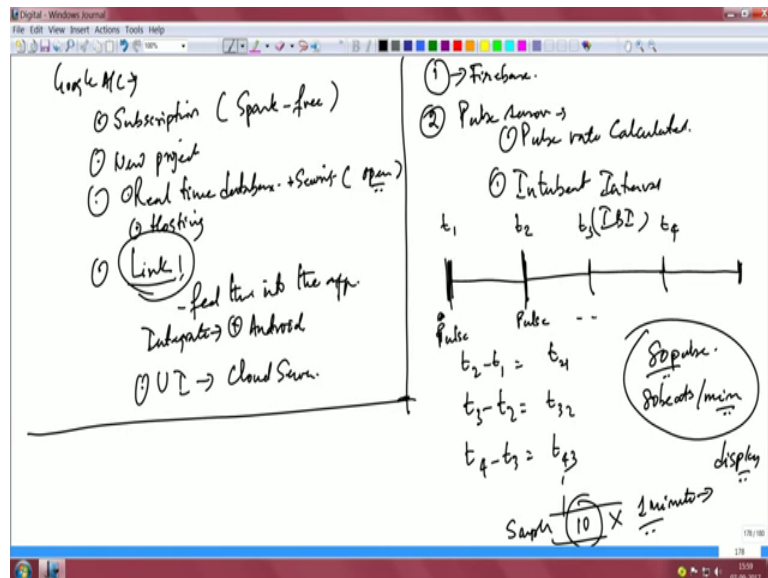 Digital - Windows Journal
File Edit View Insert Actions Tools Help
100%
Google A/C →
Subscription (Spark - free)
New project
Real time database. + Security (open)
Hosting
Link!
- feed this into the app.
Integrate → Android
UI → Cloud Server.
1 → Firebase.
2 Pulse sensor →
Pulse rate Calculated.
Interbeat Interval
t1 t2 t3 (IBI) t4
Pulse Pulse - -
t2 - t1 = t21
t3 - t2 = t32
t4 - t3 = t43
80 pulse.
80 beats/min
display
Sample 10 X 1 minute →
178 / 180
178
15:59